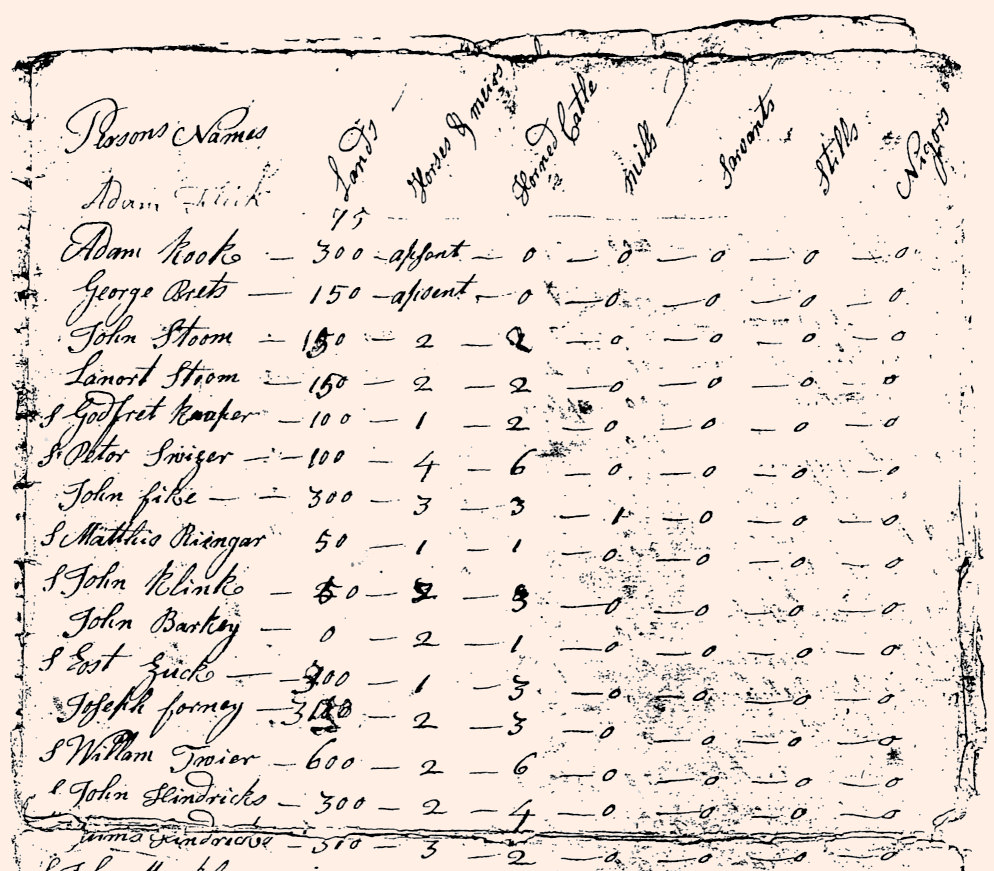 Persons Names Lands Horses & meirs Horned Cattle mills Sarvants Stills Nigors
Adam Flick 75
Adam Kook — 300 - absent — 0 — 0 — 0 — 0 — 0
George Brets — 150 - absent — 0 — 0 — 0 — 0 — 0
John Stoom — 150 — 2 — 2 — 0 — 0 — 0 — 0
Lanort Stoom — 150 — 2 — 2 — 0 — 0 — 0 — 0
S Godfret Knaper — 100 — 1 — 2 — 0 — 0 — 0 — 0
S Petor Swizer — 100 — 4 — 6 — 0 — 0 — 0 — 0
John fike — 300 — 3 — 3 — 1 — 0 — 0 — 0
S Matthis Riingar 50 — 1 — 1 — 0 — 0 — 0 — 0
S John Klink — 50 — 3 — 0 — 0 — 0 — 0
John Barkey — 0 — 2 — 1 — 0 — 0 — 0 — 0
S Eost Zuck — 300 — 1 — 3 — 0 — 0 — 0 — 0
Joseph forney — 2 — 3 — 0 — 0 — 0 — 0
S Willam Twier — 600 — 2 — 6 — 0 — 0 — 0 — 0
S John Hindricks — 300 — 2 — 4 — 0 — 0 — 0 — 0
Jaims Hindricks — 300 — 3 — 2 — 0 — 0 — 0 — 0
S John